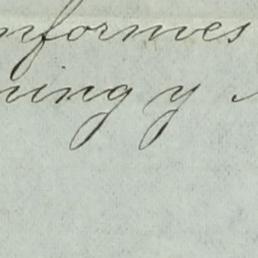 informes
ning y